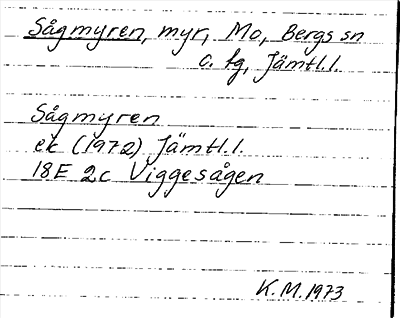 Sågmyren, myr, Mo, Bergs sn
c. fg, Jämtl.l.
Sågmyren
ek (1972) Jämtl.l.
18E 2c Viggesågen
K.M.1973